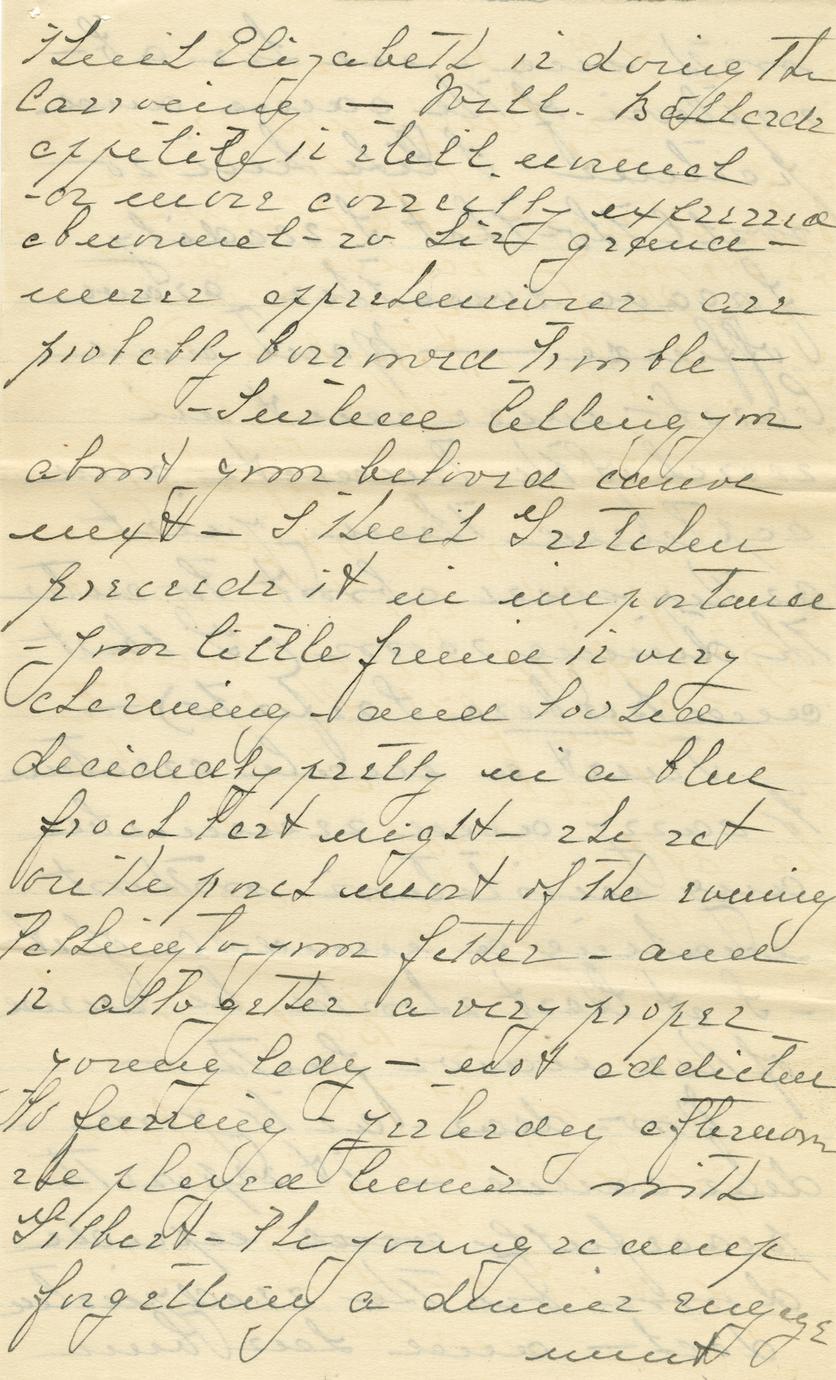 think Elizabeth is doing the
carroeing — Will. Ballards
appetite is still normal
- or more correctly expressed
abnormal - so his grand-
mere apprehensions are
probably borrowed trouble —
- I intend telling you
about your beloved canoe
next - I think Gretchen
precedes it in importance
- your little friend is very
charming - and looked
decidedly pretty in a blue
frock last night - she sat
on the porch most of the evening
talking to your father - and
is altogether a very proper
young lady - not addicted
to fussing - yesterday afternoon
she played tennis with
Gilbert - the young scamp
forgetting a dinner engage
ment